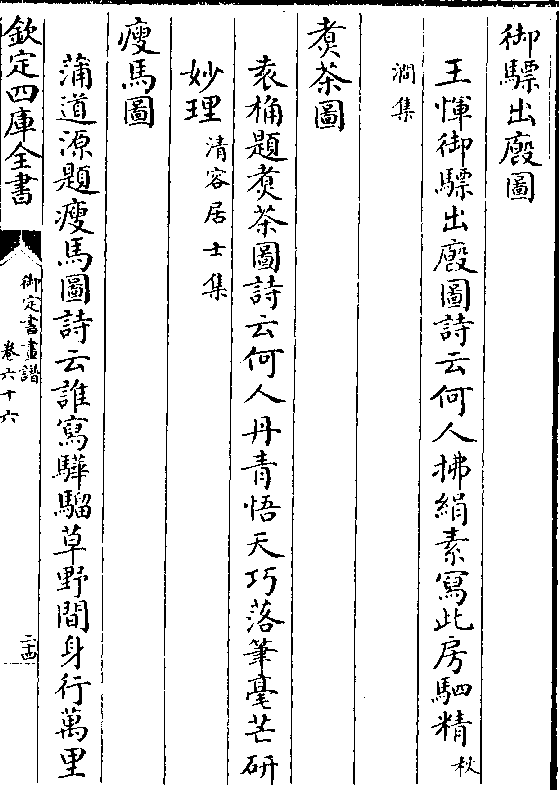 御驃出廏圖
王惲御驃出廏圖詩云何人拂絹素寫此房駟精秋
澗集
煑茶圖
袁桷題煑茶圖詩云何人丹青悟天巧落筆毫芒研
妙理清容居士集
瘦馬圖
蒲道源題瘦馬圖詩云誰寫驊騮草野間身行萬里
欽定四庫全書
御定書畫譜
卷六十六
二十四